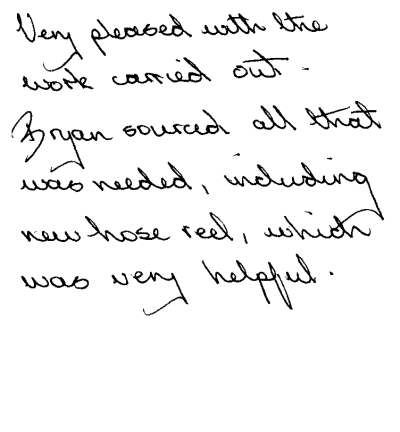 Very pleased with the
work carried out -
Bryan sourced all that
was needed, including
new hose reel, which
was very helpful.